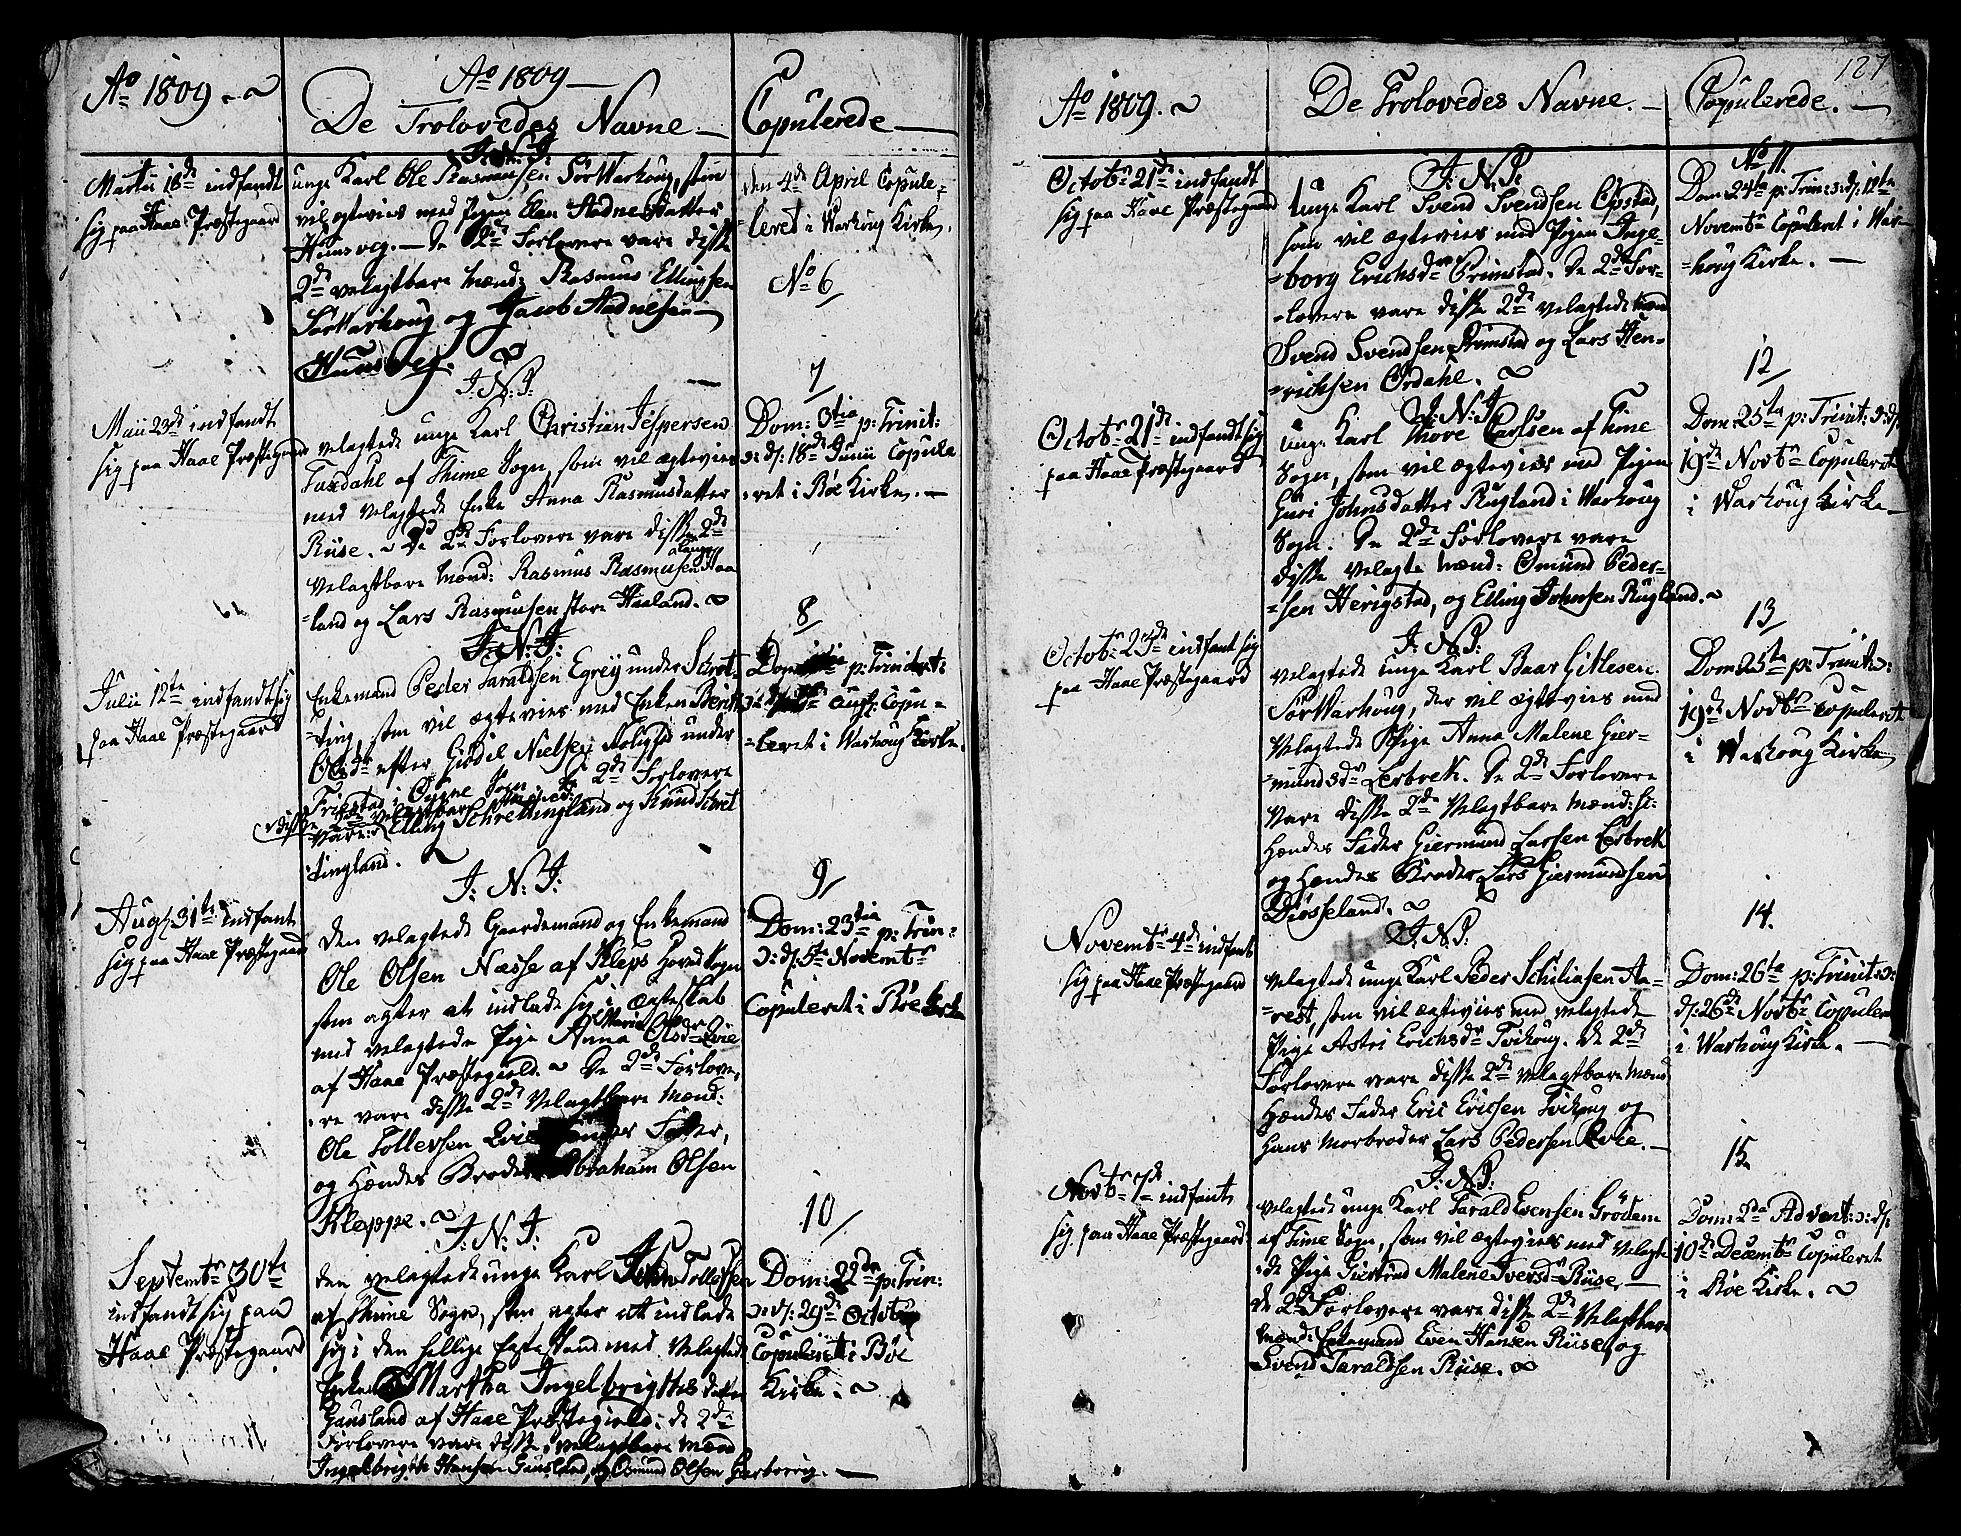 Ao 1809. ~
Ao 1809 —
De Trolovedes Navne —
Copulerede —
Martii 18de indfandt
sig paa Haae Præstegaard
J: N: J:
unge Karl Ole Rasmusen SørWarhoug, som
vil ægtevies med Pigen Elen Aadnedatter
Hunsveg. — De 2de Forlovere vare disse
2de velagtbare Mænd: Rasmus Ellingsen
SørWarhoug og Jacob Aadnesen —
Huusveg. ~
den 4de April Copule=
=leret i Warhoug Kirke.
No 6
J: N: J:
Maii 23de indfandt
sig paa Haae Præstegaard
velagtede unge Karl Christian Jespersen
Taxdahl af Thime Sogn, som vil ægtevies
med velagtede Enke Anna Rasmusdatter
Riise. ~ De 2de Forlovere vare disse 2de
velagtbare Mænd: Rasmus Rasmusen Haa
=land og Lars Rasmusen store Haaland. ~
7
Dom: 3tia p: Trinit:
ɔ: d: 18de Junii Copule
=ret i Böe Kirke. —
J: N: J:
Julii 12te indfandt sig
paa Haae Præstegaard
Enkemand Peder Taraldsen Egrey under Schret=
=ting, som vil ægtevies med Enken Berithe
Olsdr efter Giödil Nielsen under
Friestad i Oyne Sogn. De 2de Forlovere
disse 2de velagtbare Mænd:
vare: Elling Schrettingland og Knud Schret
tingland. ~
8
Dom: p: Trinitat:
Aug: Copu=
=leret i Warhoug Kirke.
J: N: J:
Aug: 31te indfant
sig paa Haae Præstegaard
den velagtede Gaardemand og Enkemand
Ole Olsen Næsse af Kleps Hoved Sogn
som agter at indlade sig i Ægteskab
med velagtede Pige Anna Maria Olsdr Qvie
af Haae Præstegield. ~ De 2de Forlove,
=re vare disse 2de velagtbare Mænd:
Ole Tollevsen Fader,
og Hendes Broder Abraham Olsen
Kleppe. ~
9
Dom: 23tia p: Trin:
ɔ: d: 5te Novembr
Copuleret i Böe Kirke
J: N: J:
Septembr 30te
indfandt sig paa
Haae Præstegaard
den velagtede unge Karl John Tollefsen
af Thime Sogn, som agter at indlade
sig i den hellige Egtestand med velagtede
Enke Martha Ingelbrigthsdatter
Gausland af Haae Præstegield: de 2de
Forlovere vare disse velagtbare Mænd
Ingelbrigth Hansen Gausland, og Osmund Olsen Garborrig. —
10
Dom: 22de p: Trin:
ɔ: d: 29de Octobr
Copuleret i Böe
Kirke. ~
127
Ao 1809. ~
De Trolovedes Navne. —
Copulerede. —
Octobr 21de indfandt
sig paa Haae Præstegaard
J: N: J:
unge Karl Svend Svendsen Opstad,
som vil ægtevies med Pigen Inge=
=borg Erichsdr Grimstad. De 2de For=
=lovere vare disse 2de velagtede Mænd
Svend Svendsen Grimstad og Lars Hen=
=richsen Ordahl. ~
No 11.
Dom: 24te p: Trin: ɔ: d: 12te
Novembr Copuleret i War=
=houg Kirke. —
J: N: J
Octobr 21de indfandt sig
paa Haae Præstegaard
unge Karl Thore Carlsen af Time
Sogn, som vil ægtevies med Pigen
Guri Johnsdatter Rugland i Warhoug
Sogn. De 2de Forlovere vare
disse velagte Mænd: Omund Peder=
=sen Herigstad, og Elling Johnsen Rugland. ~
12
Dom: 25te p: Trinit: ɔ: d:
19de Novbr Copuleret
i Warhoug Kirke —
J: N: J:
Octobr 23de indfant sig
paa Haae Præstegaard
velagtede unge Karl Baar Gitlesen
SørWarhoug, der vil ægtevies med
velagtede Pige Anna Malene Gier=
=mundsdr Lerbrek. De 2de Forlovere
vare disse 2de velagtbare Mænd:
Hendes Fader Giermund Larsen Lerbrek
og Hendes Broder Lars Giermundsen
Diösseland. ~
13
Dom: 25te p: Trinit: ɔ:
19de Novbr Copuleret
i Warhoug Kirke
J: N: J:
Novembr 4de indfant
sig paa Haae Præstegaard
velagtede unge Karl Peder Schiliasen Aa=
=rest, som vil ægtevies med velagtede
Pige Astri Erichsdr Tvihoug. De 2de
Forlovere vare disse 2de velagtbare Mænd
Hendes Fader Eric Ericsen Tvihoug og
Hans Morbroder Lars Pedersen Qvie. —
14.
Dom: 26te p: Trinit: ɔ:
d: 26de Novbr Copuleret
i Warhoug Kirke. —
J: N: J:
Novbr 7de indfant
sig paa Haae Præstegaard
velagtede unge Karl Tarald Evensen Grödem
af Time Sogn, som vil ægtevies med velagte
=de Pige Giertrud Malene Iversdr Riise. —
De 2de Forlovere vare disse 2de velagtbare
Mænd: Enkemand Even Hansen Riise, og
Svend Taraldsen Riise. ~
15
Dom: 2da Advent: ɔ: d:
10de Decembr Copuleret
i Böe Kirke. ~